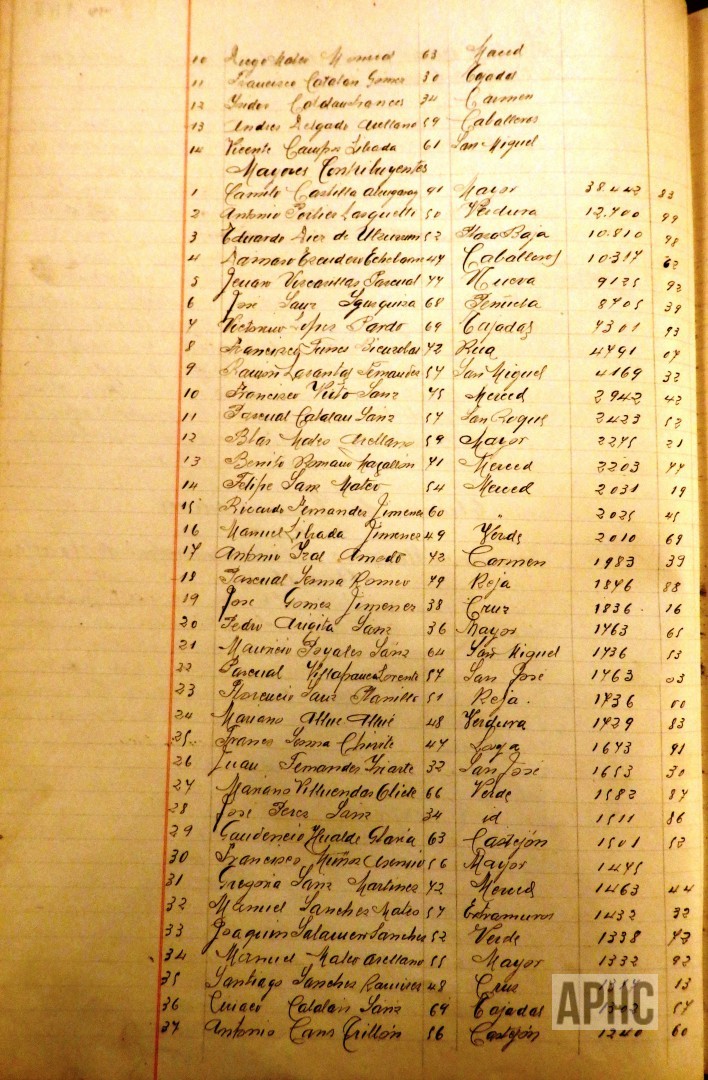 10 Diego Mateo 63 Merced
11 Francisco Catalán Gomez 30 Tejadas
12 Isidro 34 Carmen
13 Andres Delgado Arellano 59 Caballeros
14 Vicente Campos Librada 61 San Miguel
Mayores Contribuyentes
1 Camilo Castilla 41 Mayor 38.442 83
2 Antonio 50 Verdura 12.400 99
3 Eduardo Diez de Ulzurrun 52 Baja 10.810 98
4 Damaso Escudero 47 Caballeros 10317 62
5 Juan Pascual 44 Nueva 9125 92
6 Jose Sanz 68 8405 39
7 Victorino Lopez Pardo 69 Tajadas 4301 93
8 Francisco 42 Rua 4491 04
9 Ramón Lasanta Fernandez 54 San Miguel 4169 32
10 Francisco Sanz 45 Merced 2942 42
11 Pascual Catalan Sainz 54 San Roque 2423 52
12 Blas Mateo Arellano 59 Mayor 2245 21
13 Benito Romano Magallon 41 Merced 2203 44
14 Felipe Sanz Mateo 54 Merced 2031 19
15 Ricardo Fernandez Jimenez 60 " 2025 45
16 Manuel Librada Jimenez 49 Verde 2010 69
17 Antonio 42 Carmen 1983 39
18 Pascual Sesma Romeo 49 Reja 1846 88
19 Jose Gomez Jimenez 38 Cruz 1836 16
20 Pedro Arigita Sanz 36 Mayor 1763 65
21 Mauricio Poyales Sainz 64 San Miguel 1736 53
22 Pascual Villafranca Lorente 57 San José 1763 03
23 Florencio Sanz Planillo 51 Reja. 1736 00
24 Mariano Allue Allué 48 Verdura 1729 83
25 Franco Sesma Chivite 47 1673 91
26 Juan Fernandez Iriarte 32 San José 1653 30
27 Mariano Villuendas Oliete 66 Verde 1582 87
28 Jose Perez Sainz 34 id 1511 86
29 Gaudencio Hualde Glaria 63 Castejón 1501 52
30 Francisco Muñoz Asensio 56 Mayor 1475
31 Gregorio Sanz Martinez 42 Merced 1463 44
32 Manuel Sanchez Mateo 57 Extramuros 1432 32
33 Joaquin Salamero Sanchez 52 Verde 1338 72
34 Manuel Mateo Arellano 55 Mayor 1332 92
35 Santiago Sanchez Ramirez 48 Cruz 13
36 Ciriaco Catalán Sainz 69 Tojadas 57
37 Antonio Trillón 56 Castejón 1240 60
APHC